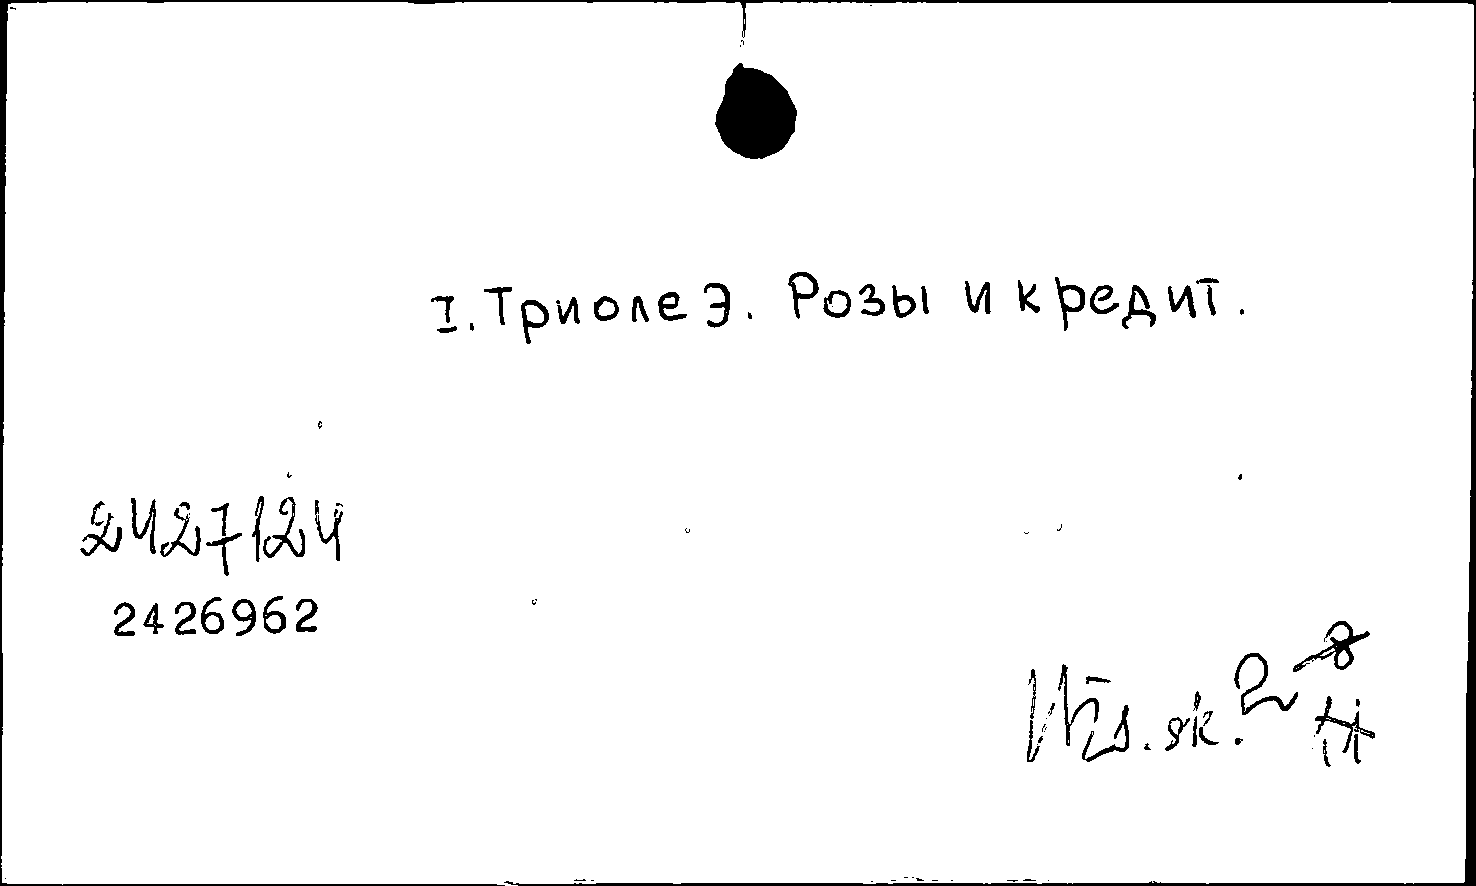 I. Триоле Э. Розы и кредит.
2427124
2426962
sk. 2